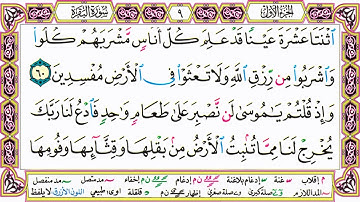 الجزء الأول ٩ سورة البقرة
ٱثۡنَتَا عَشۡرَةَ عَيۡنٗاۖ قَدۡ عَلِمَ كُلُّ أُنَاسٖ مَّشۡرَبَهُمۡۖ كُلُواْ
وَٱشۡرَبُواْ مِن رِّزۡقِ ٱللَّهِ وَلَا تَعۡثَوۡاْ فِي ٱلۡأَرۡضِ مُفۡسِدِينَ ٦٠
وَإِذۡ قُلۡتُمۡ يَٰمُوسَىٰ لَن نَّصۡبِرَ عَلَىٰ طَعَامٖ وَٰحِدٖ فَٱدۡعُ لَنَا رَبَّكَ
يُخۡرِجۡ لَنَا مِمَّا تُنۢبِتُ ٱلۡأَرۡضُ مِنۢ بَقۡلِهَا وَقِثَّآئِهَا وَفُومِهَا